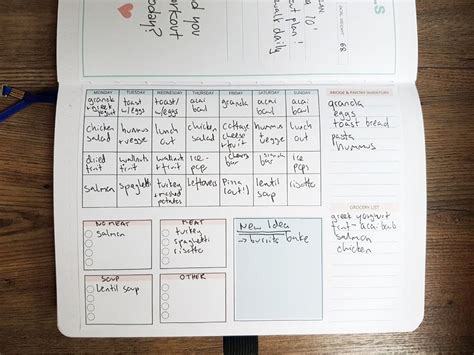 nd you
workout
today?
a 10'
out plan!
walk daily
68
S
MONDAY TUESDAY WEDNESDAY THURSDAY FRIDAY SATURDAY SUNDAY
granola
+ greek
yogurt
toast
w/eggs
toast/
w/eggs
acai
bowl
granola
acai
bowl
acai
bowl
chicken
salad
hummus
+ vegge
lunch
out
chicken
salad
cottage
cheese
+ fruit
hummus
+ vegge
lunch
out
dried
fruit
wallnuts
fruit
wallnut
+ fruit
ice-
pops
bar
snack
bar
ice
pops
salmon
spaghetti
turkey
+ mashed
potatoes
leftovers
Pizza
out!
lentil
soup
risotto
FRIDGE & PANTRY INVENTORY
granola
eggs
toast bread
pasta
hummus
GROCERY LIST
greek yoghurt
fruit - acai bowl
salmon
chicken
NO MEAT
salmon
MEAT
turkey
spaghetti
risotto
New Idea
→ burrito bake
SOUP
lentil soup
OTHER